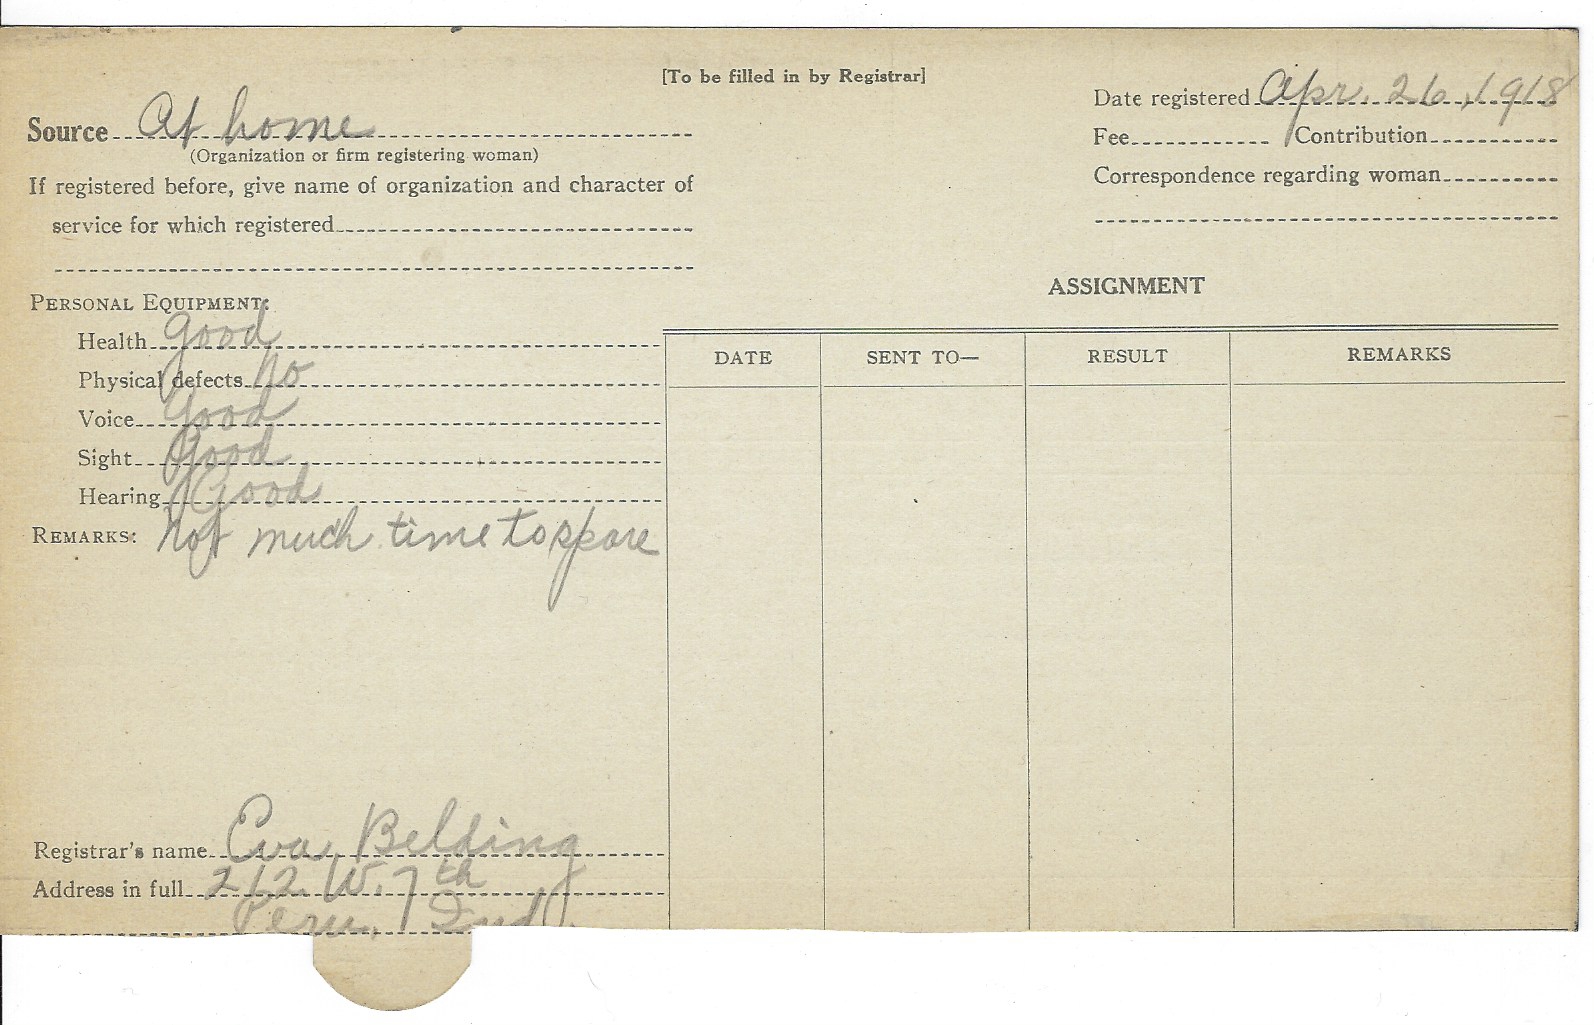 [To be filled in by Registrar]
Source At home
(Organization or firm registering woman)
If registered before, give name of organization and character of
service for which registered
Date registered Apr. 26, 1918
Fee Contribution
Correspondence regarding woman
PERSONAL EQUIPMENT:
Health good
Physical defects no
Voice Good
Sight Good
Hearing Good
REMARKS: not much time to spare
Registrar's name Eva Belding
Address in full 212 W. 7th
Peru, Ind.
ASSIGNMENT
DATE SENT TO— RESULT REMARKS